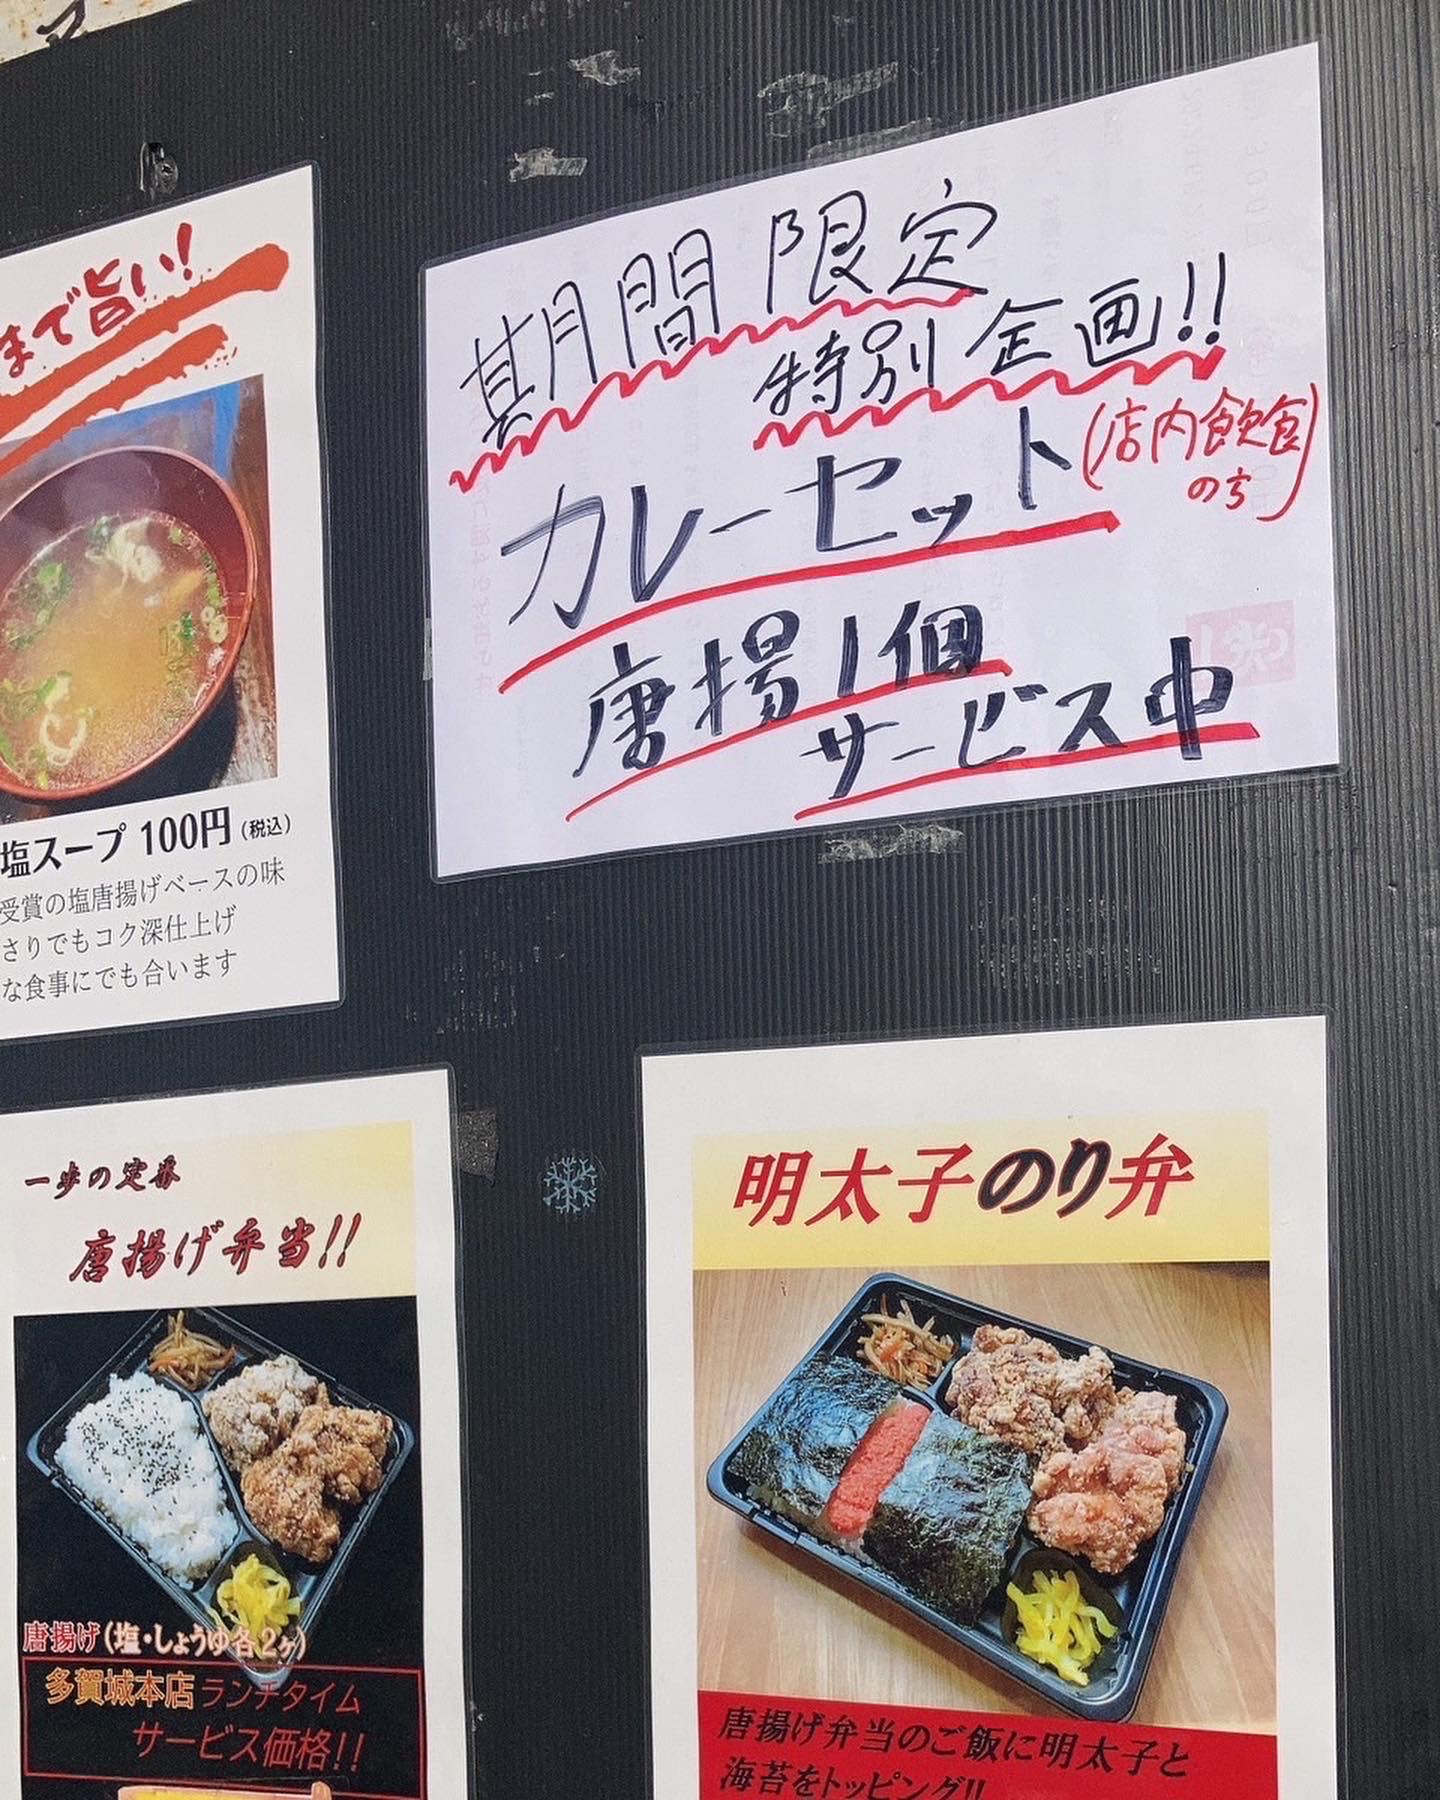 まで旨い!
塩スープ 100円(税込)
受賞の塩唐揚げベースの味
さりでもコク深仕上げ
な食事にでも合います
期間限定
特別企画!!
カレーセット
(店内飲食
のち)
唐揚1個
サービス中
一歩の定番
唐揚げ弁当!!
唐揚げ(塩・しょうゆ各2ヶ)
多賀城本店ランチタイム
サービス価格!!
明太子のり弁
唐揚げ弁当のご飯に明太子と
海苔をトッピング!!